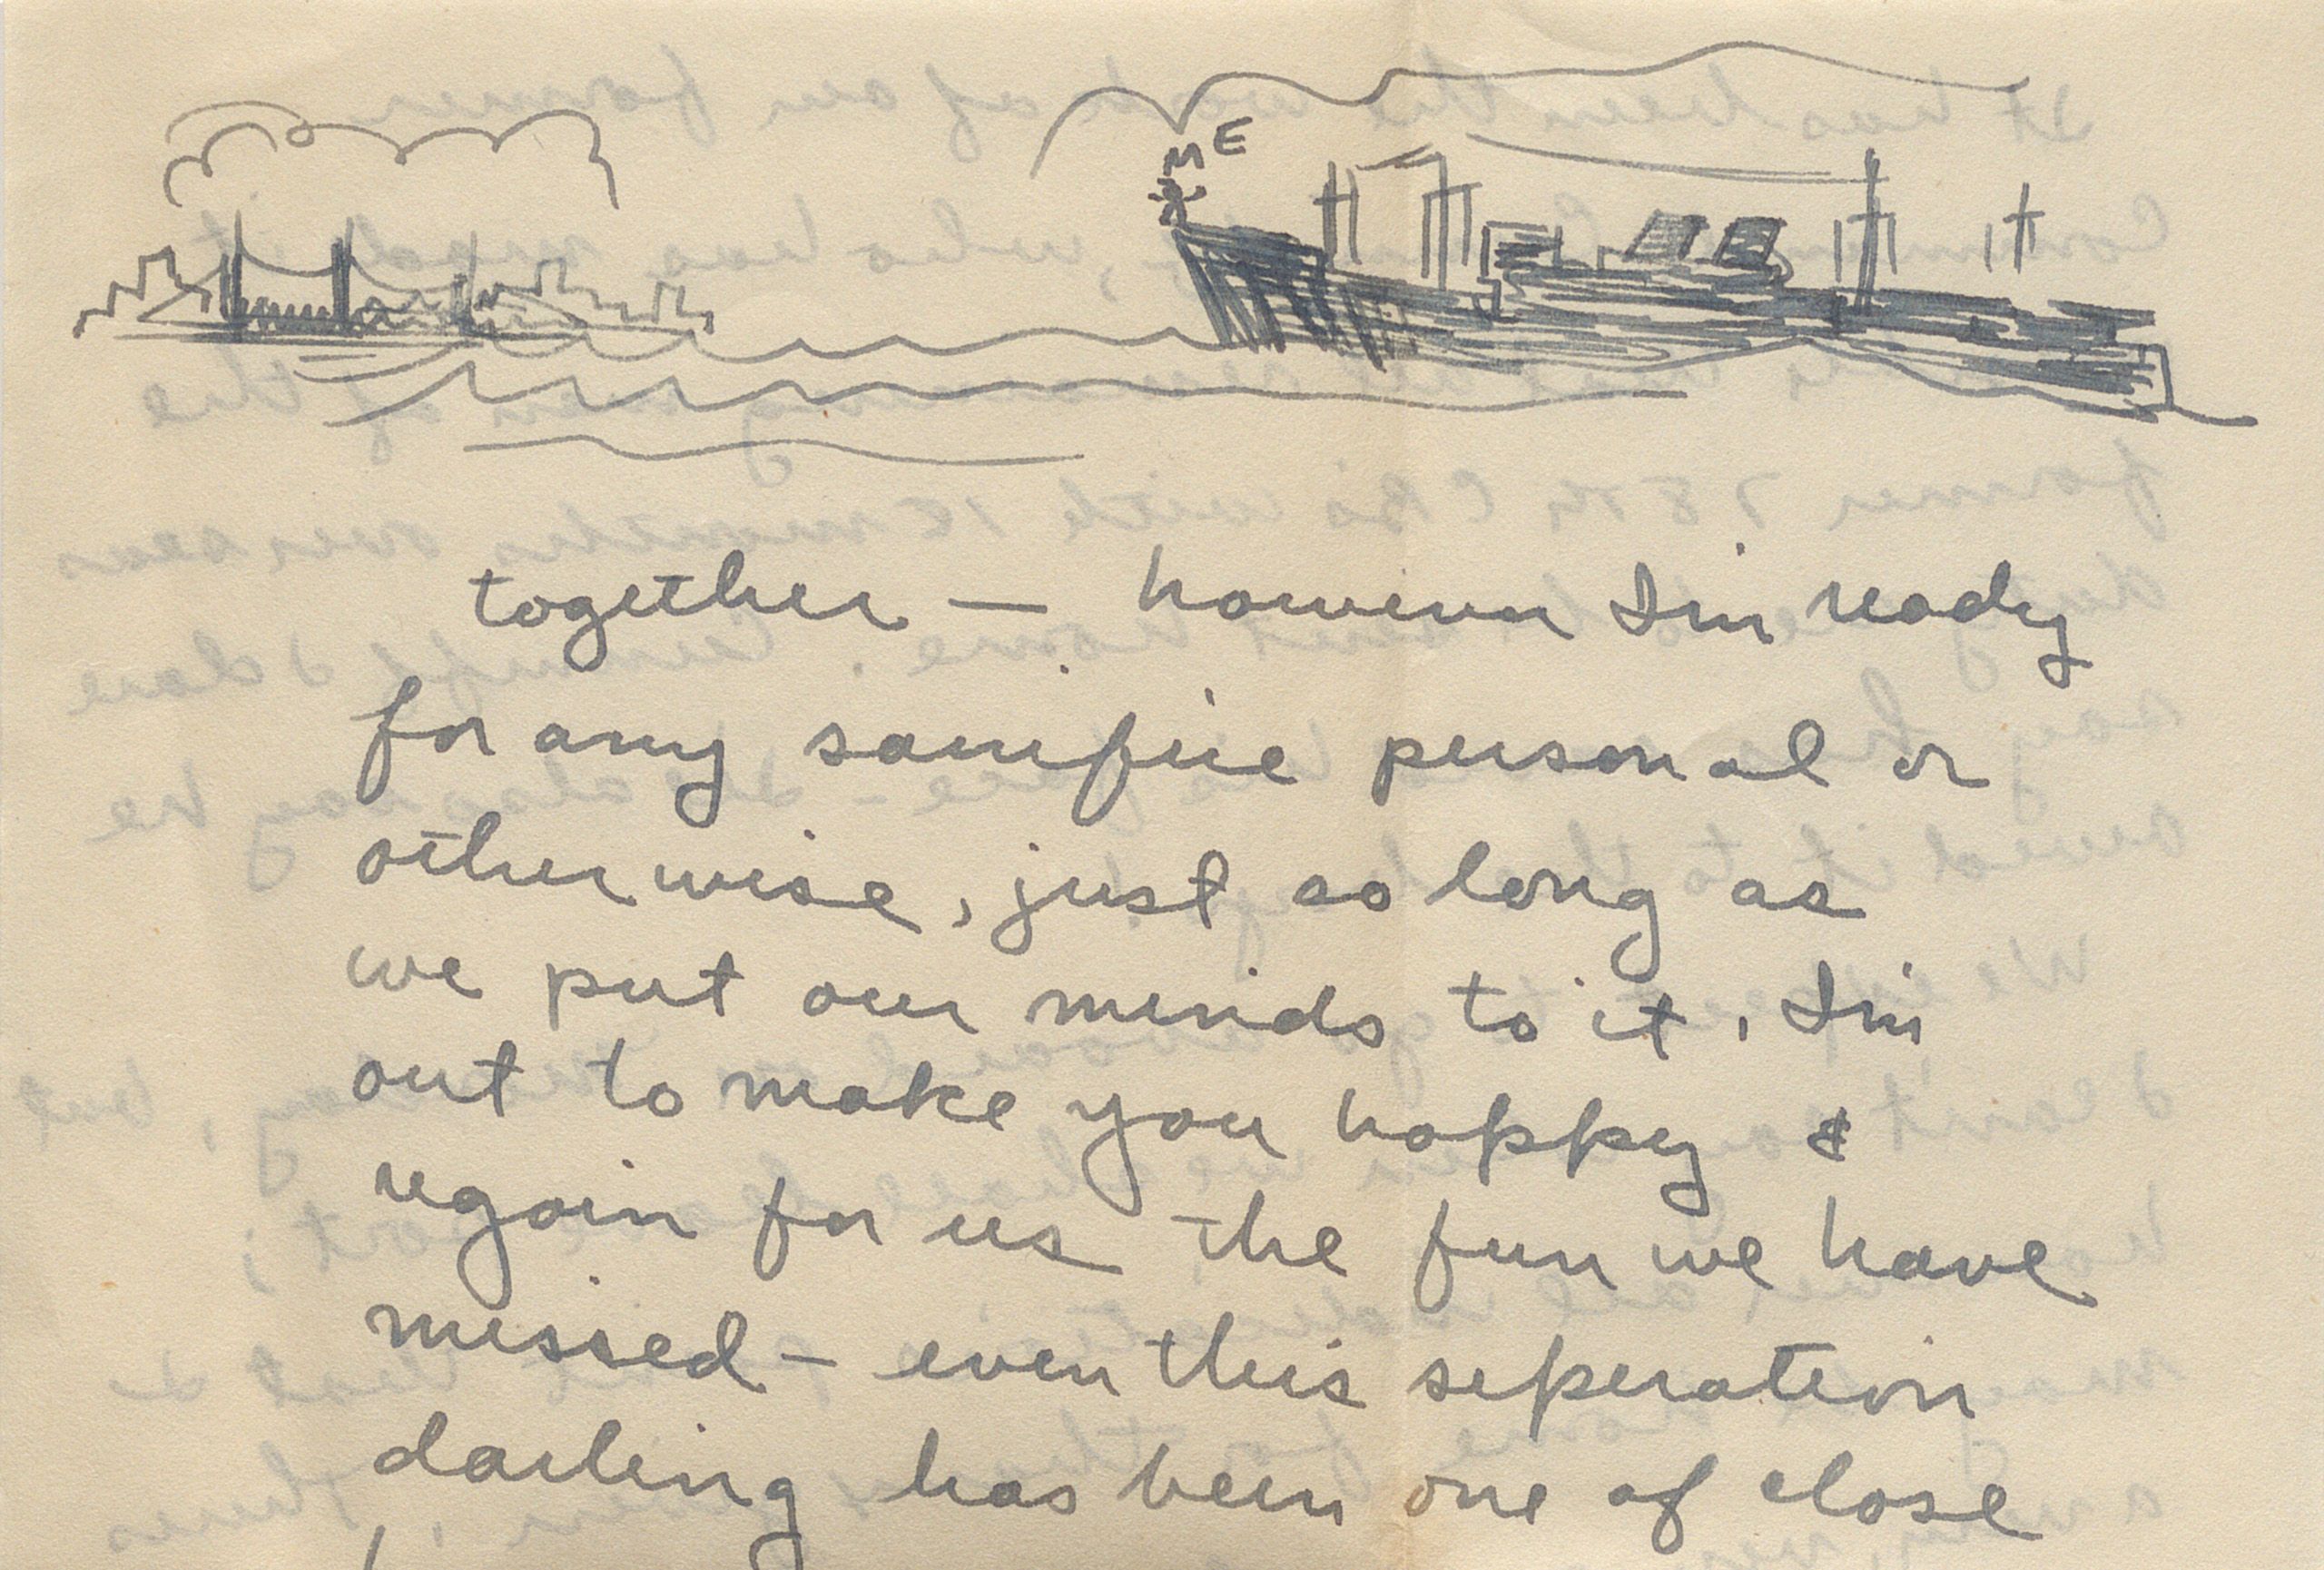 ME
together — however I'm ready
for any sacrifice personal or
otherwise, just so long as
we put our minds to it, I'm
out to make you happy &
regain for us the fun we have
missed — even this seperation
darling has been one of close